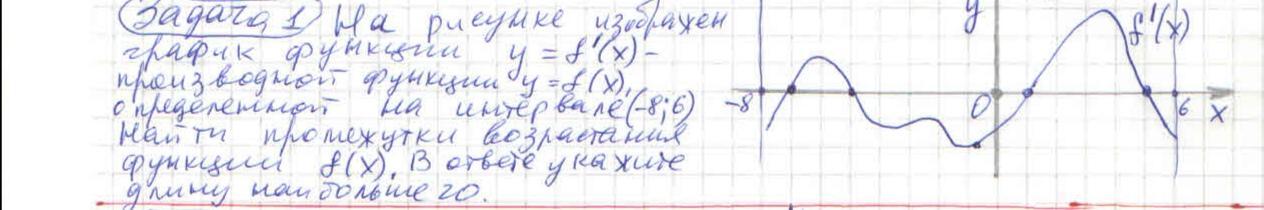 Задача 1) На рисунке изображен
график функции y = f'(x) -
производной функции y = f(x),
определенной на интервале (-8; 6)
Найти промежутки возрастания
функции f(x). В ответе укажите
длину наибольшего.
y
f'(x)
-8 0 6 x